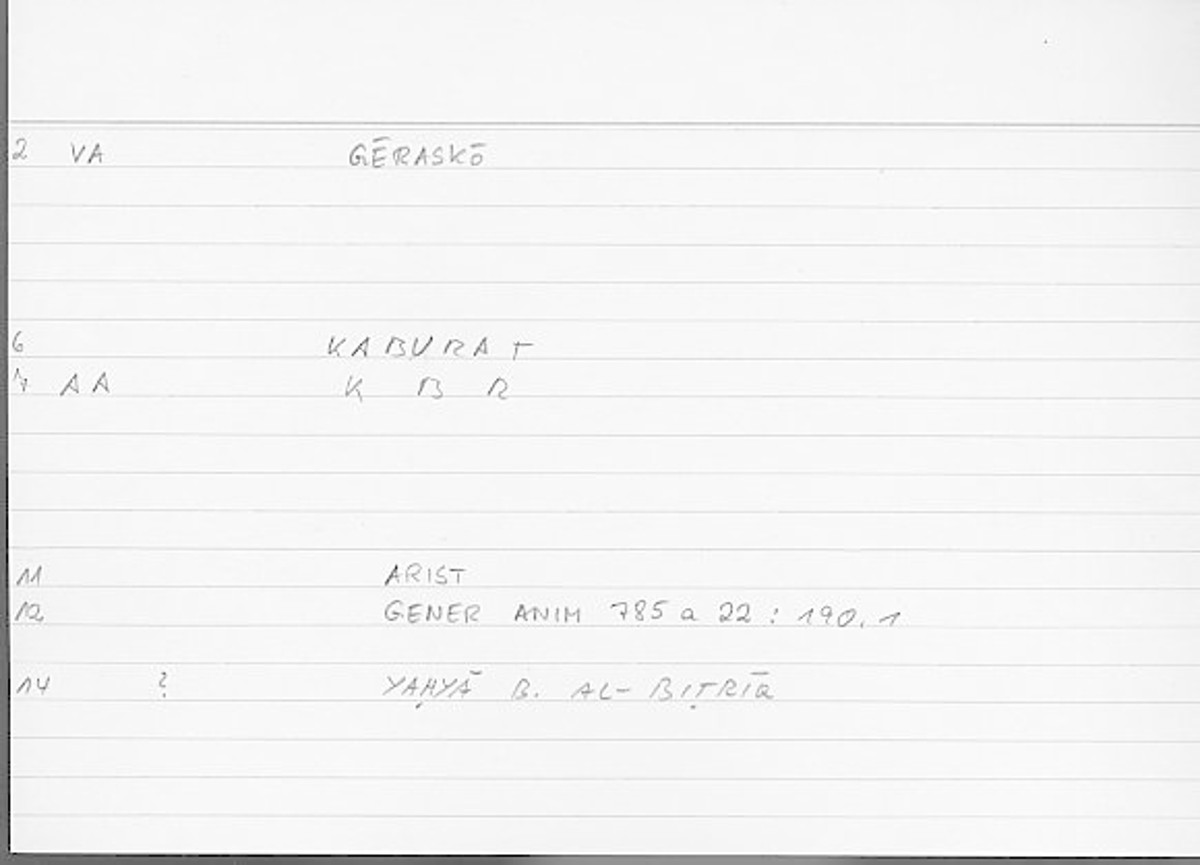 2 VA GĒRASKŌ
6 KABURAT
7 AA K B R
11 ARIST
12 GENER ANIM 785 a 22 : 190.1
14 ? YAḤYĀ B. AL-BIṬRĪQ